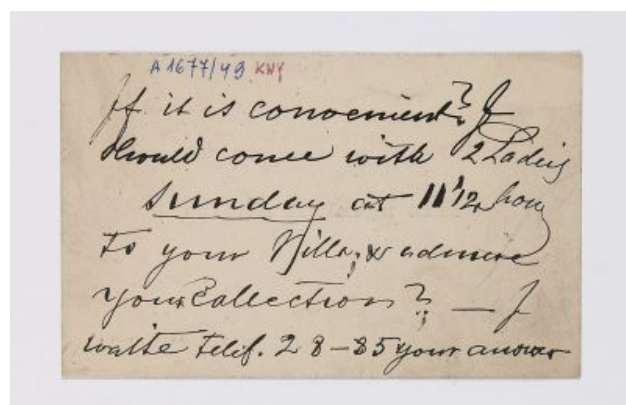 A 1677/49 KHY
If it is convenient? I
should come with 2 Ladies
Sunday at 11 1/2 hour
to your Villa, & admire
your Collection? — I
waite Telef. 28-85 your answer